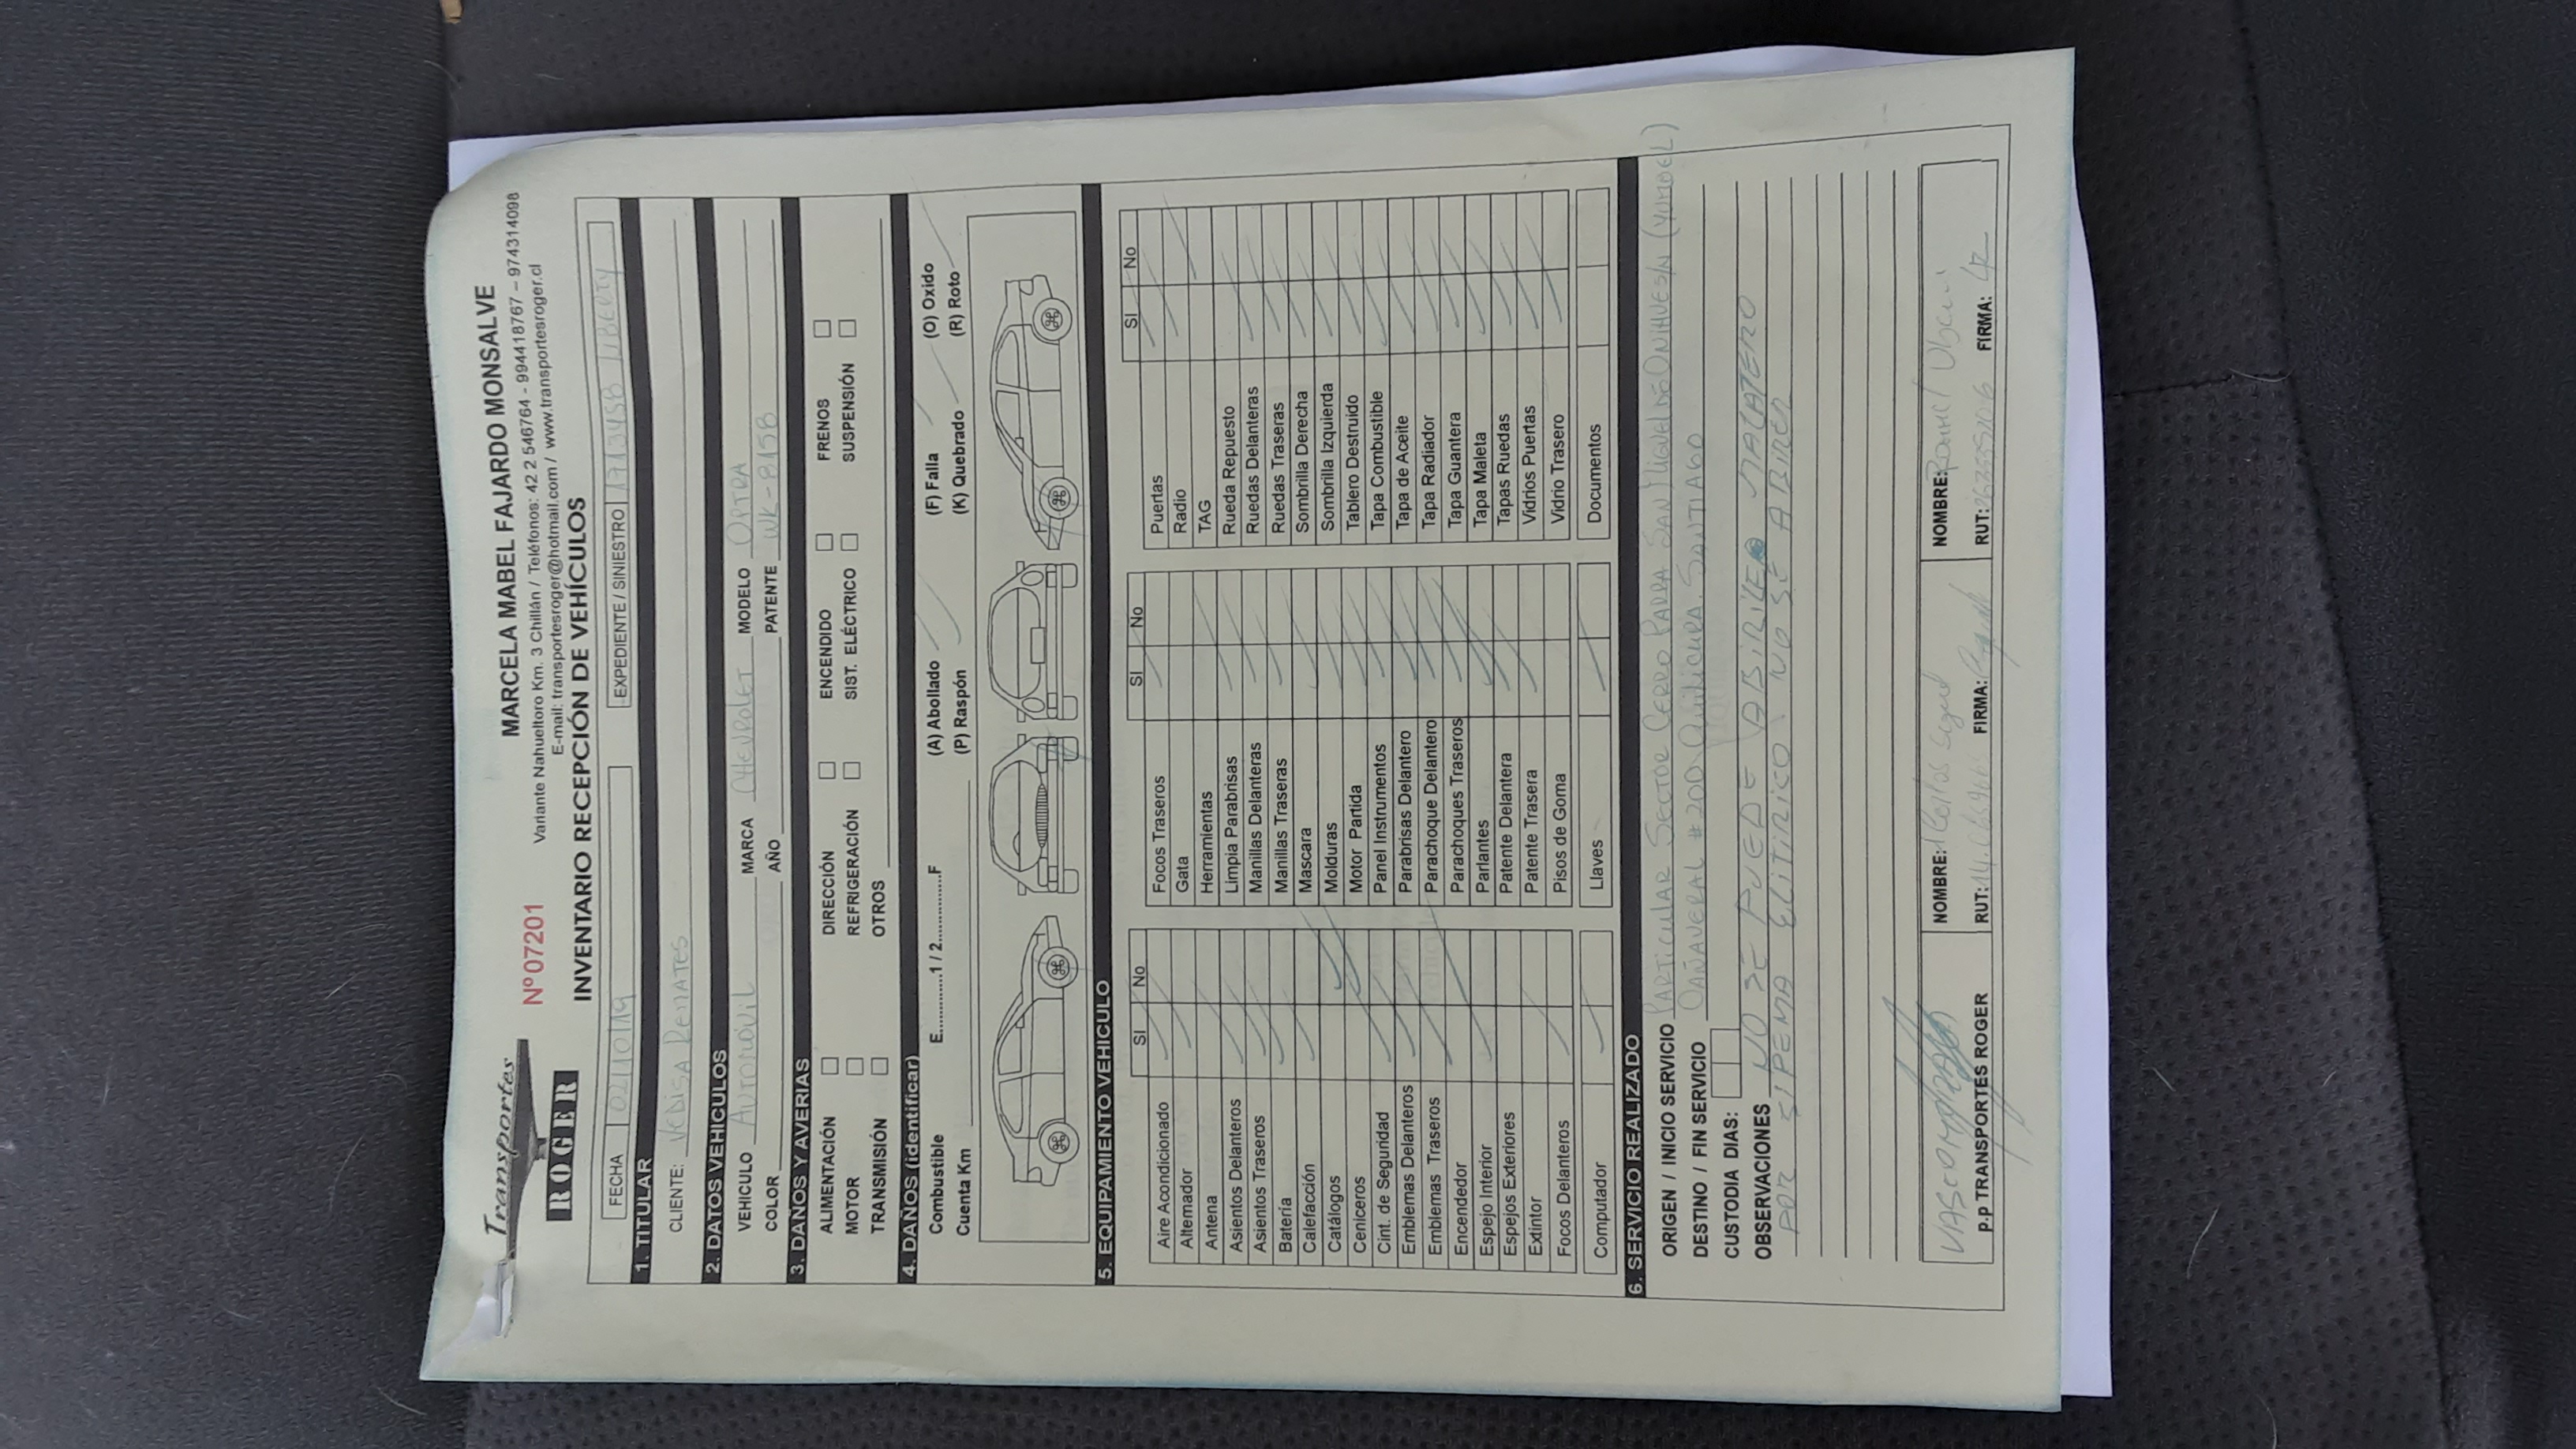 Transportes
ROGER
Nº 07201
MARCELA MABEL FAJARDO MONSALVE
Variante Nahueltoro Km. 3 Chillán / Teléfonos: 42 2 546764 - 994418767 – 974314098
E-mail: transportesroger@hotmail.com / www.transportesroger.cl
INVENTARIO RECEPCIÓN DE VEHÍCULOS
FECHA 02/10/19 EXPEDIENTE / SINIESTRO LIBERTY
1. TITULAR
CLIENTE: VEDISA REMATES
2. DATOS VEHICULOS
VEHICULO AUTOMOVIL MARCA CHEVROLET MODELO OPTRA
COLOR AÑO PATENTE WK-8158
3. DAÑOS Y AVERIAS
ALIMENTACIÓN DIRECCIÓN ENCENDIDO FRENOS
MOTOR REFRIGERACIÓN SIST. ELÉCTRICO SUSPENSIÓN
TRANSMISIÓN OTROS
4. DAÑOS (identificar)
Combustible E............1 / 2............F (A) Abollado (F) Falla (O) Oxido
Cuenta Km (P) Raspón (K) Quebrado (R) Roto
5. EQUIPAMIENTO VEHICULO
SI No SI No SI No
Aire Acondicionado Focos Traseros Puertas
Alternador Gata Radio
Antena Herramientas TAG
Asientos Delanteros Limpia Parabrisas Rueda Repuesto
Asientos Traseros Manillas Delanteras Ruedas Delanteras
Batería Manillas Traseras Ruedas Traseras
Calefacción Mascara Sombrilla Derecha
Catálogos Molduras Sombrilla Izquierda
Ceniceros Motor Partida Tablero Destruido
Cint. de Seguridad Panel Instrumentos Tapa Combustible
Emblemas Delanteros Parabrisas Delantero Tapa de Aceite
Emblemas Traseros Parachoque Delantero Tapa Radiador
Encendedor Parachoques Traseros Tapa Guantera
Espejo Interior Parlantes Tapa Maleta
Espejos Exteriores Patente Delantera Tapas Ruedas
Extintor Patente Trasera Vidrios Puertas
Focos Delanteros Pisos de Goma Vidrio Trasero
Computador Llaves Documentos
6. SERVICIO REALIZADO
ORIGEN / INICIO SERVICIO PARTICULAR SECTOR CERRO PARRA SAN MIGUEL DE S/N (YUNGEL)
DESTINO / FIN SERVICIO CAÑAVERAL #200 QUILICURA, SANTIAGO
CUSTODIA DIAS:
OBSERVACIONES NO SE PUEDE MALATERO
POR SIPEMA NO SE ABRIER
p.p TRANSPORTES ROGER
NOMBRE: NOMBRE:
RUT: FIRMA: RUT: FIRMA: